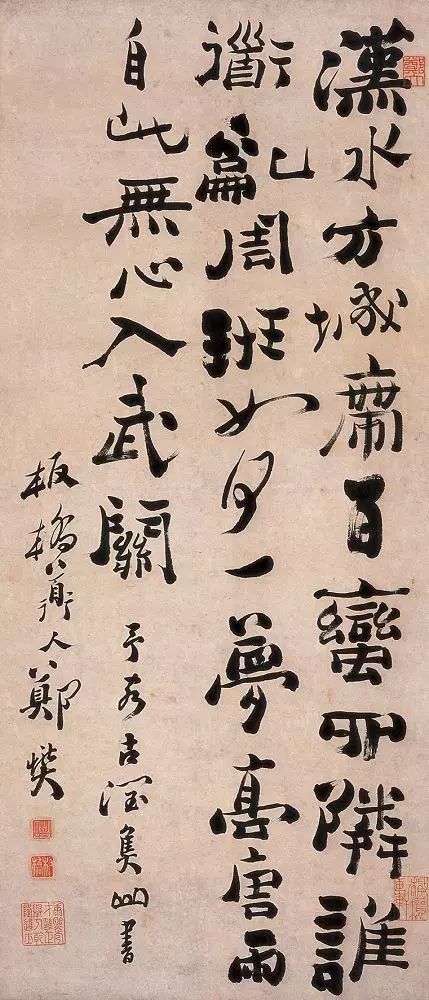 漢水方城帶百蠻四鄰誰
道亂周班如何一夢高唐雨
自此無心入武關
予古書
板橋道人鄭燮